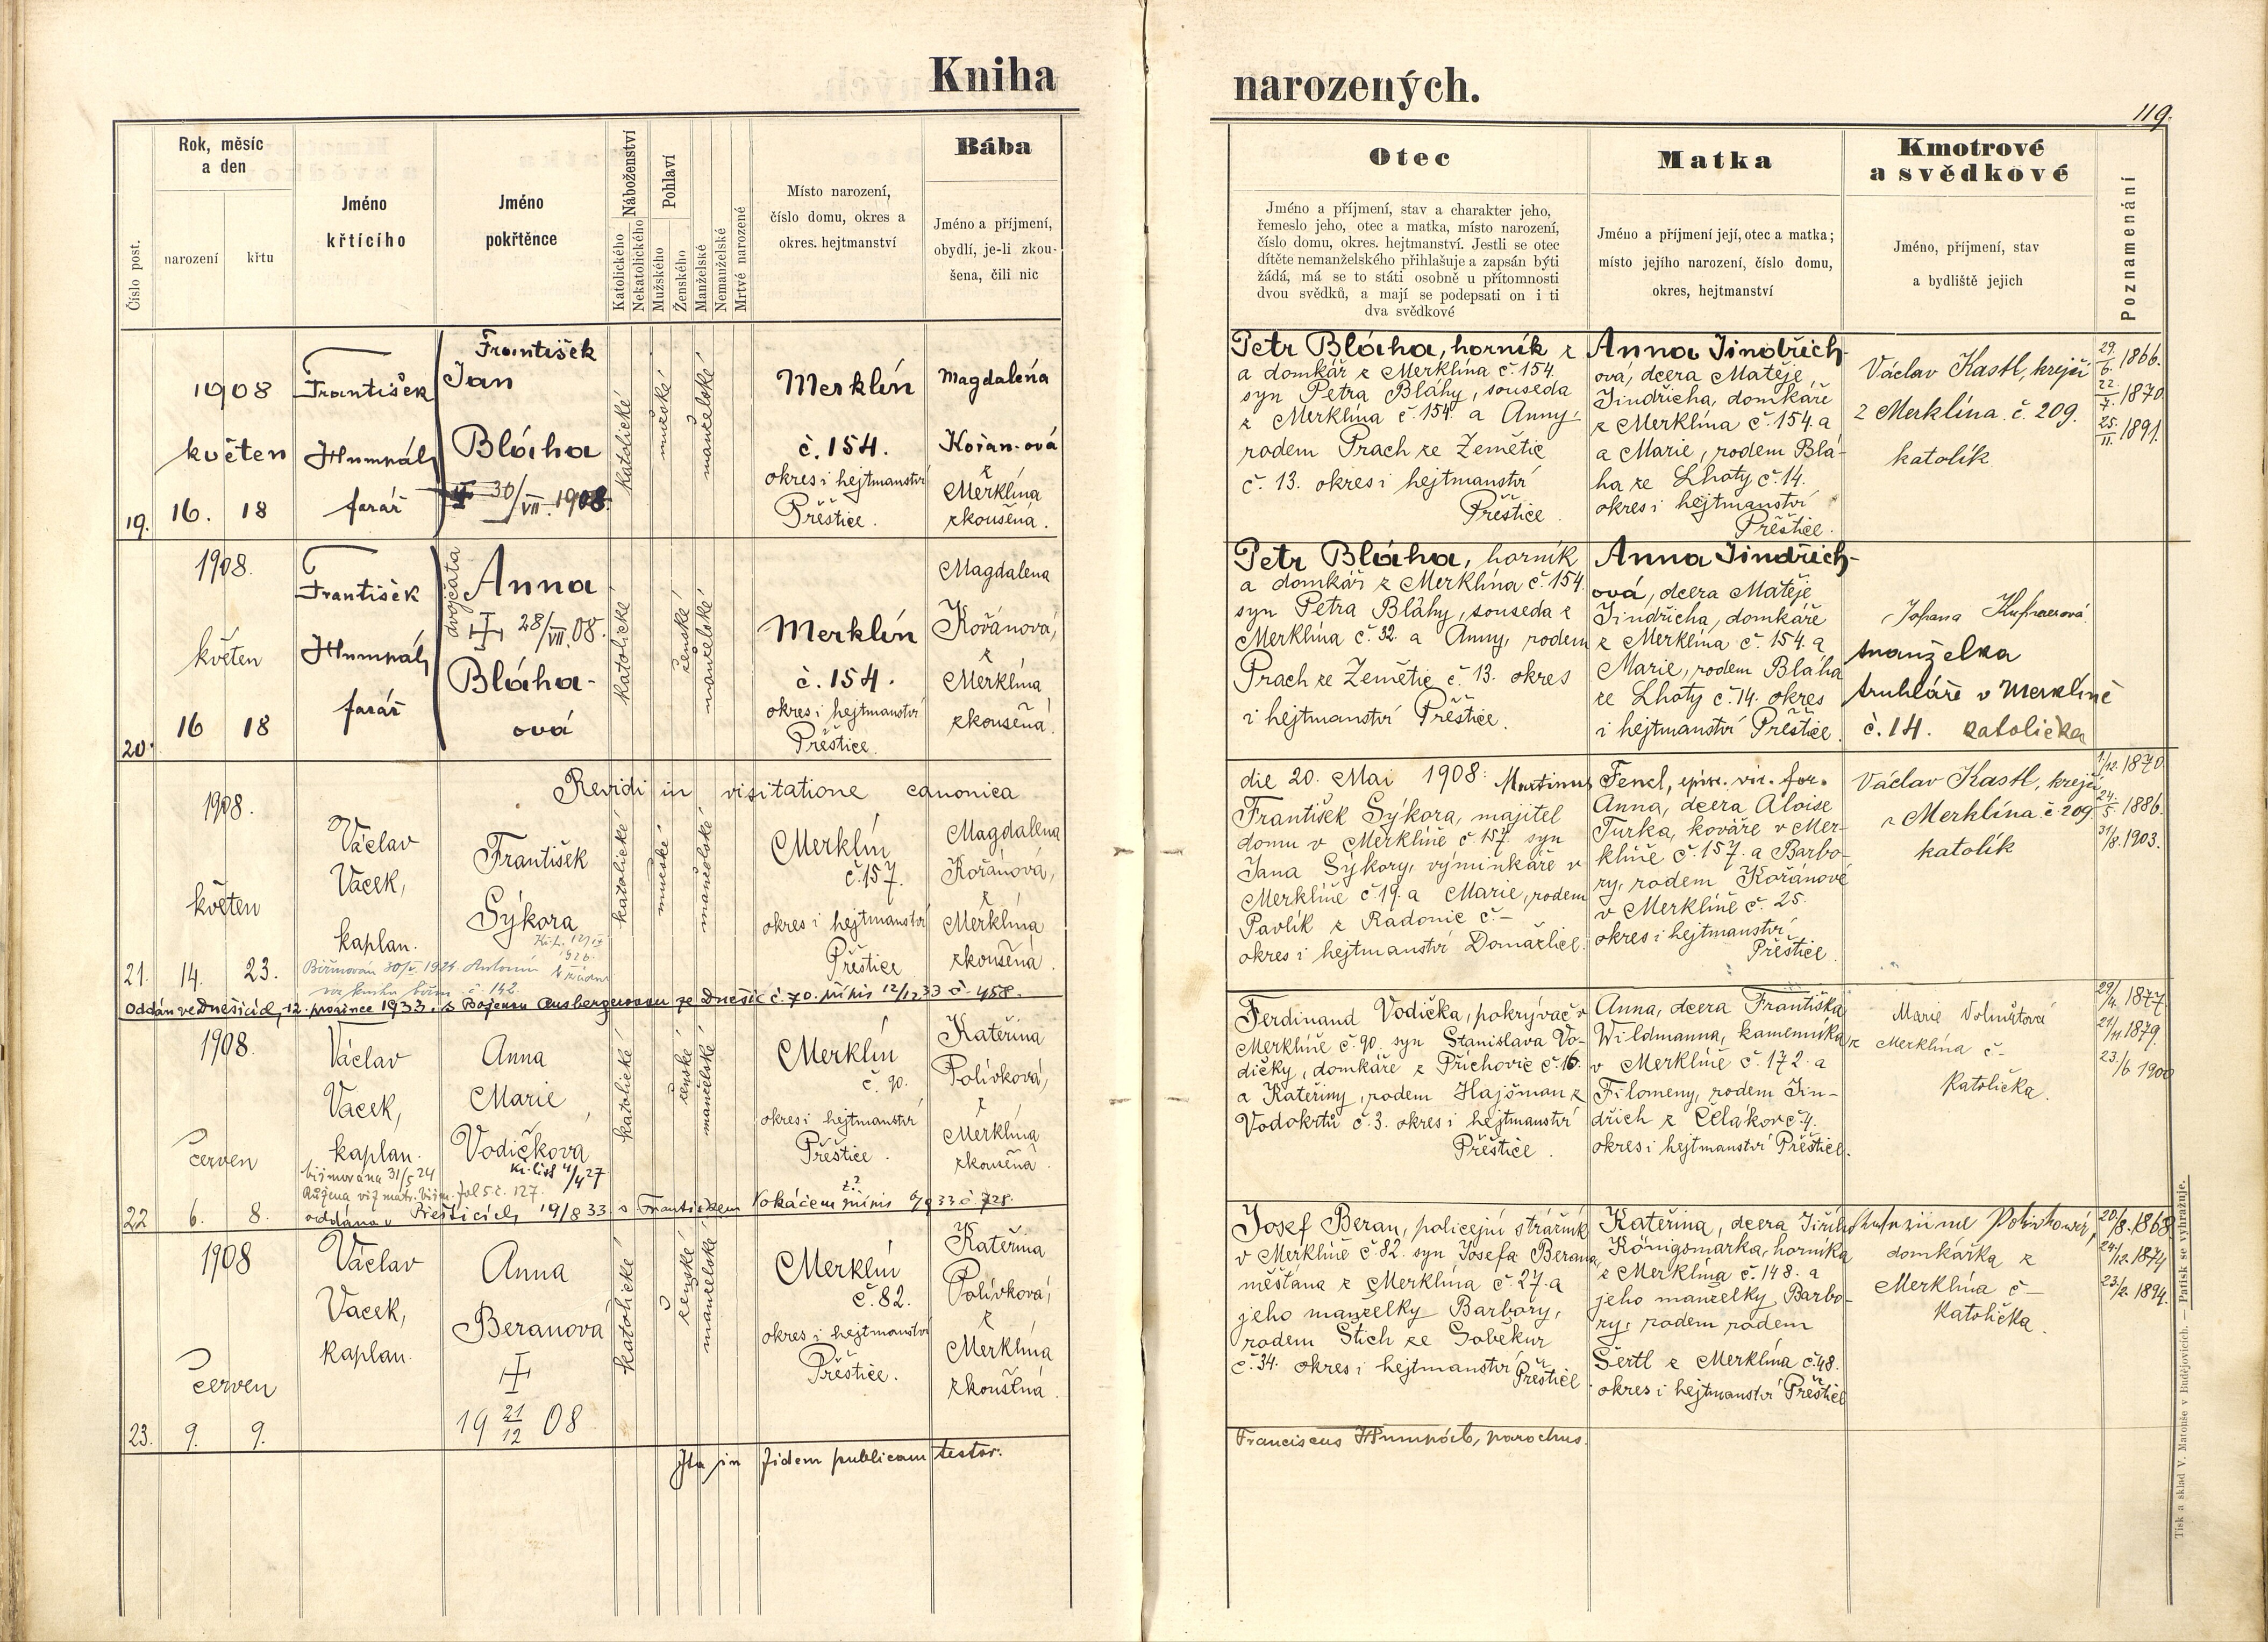 Kniha
narozených.
119.
Rok, měsíc
a den
narození
křtu
Číslo post.
Jméno
křtícího
Jméno
pokřtěnce
Náboženství
Katolického
Nekatolického
Pohlaví
Mužského
Ženského
Manželské
Nemanželské
Mrtvě narozené
Místo narození,
číslo domu, okres a
okres. hejtmanství
Bába
Jméno a příjmení,
obydlí, je-li zkou-
šena, čili nic
Otec
Jméno a příjmení, stav a charakter jeho,
řemeslo jeho, otec a matka, místo narození,
číslo domu, okres. hejtmanství. Jestli se otec
dítěte nemanželského přihlašuje a zapsán býti
žádá, má se to státi osobně u přítomnosti
dvou svědků, a mají se podepsati on i ti
dva svědkové
Matka
Jméno a příjmení její, otec a matka;
místo jejího narození, číslo domu,
okres, hejtmanství
Kmotrové
a svědkové
Jméno, příjmení, stav
a bydliště jejich
Poznamenání
19.
1908
květen
16. 18
František
Humpál,
farář
František
Jan
Bláha
30/VII. 1908.
katolické
mužské
manželské
Merklín
č. 154.
okres i hejtmanství
Přeštice.
Magdalena
Kořan-ová
z
Merklína
zkoušená.
Petr Bláha, horník z
a domkář z Merklína č. 154.
syn Petra Bláhy, souseda
z Merklína č. 154. a Anny,
rodem Prach ze Zemětic
č. 13. okres i hejtmanství
Přeštice.
Anna Jindřich-
ová, dcera Matěje
Jindřicha, domkáře
z Merklína č. 154. a
a Marie, rodem Blá-
ha ze Lhoty č. 14.
okres i hejtmanství
Přeštice.
Václav Kastl, krejčí
z Merklína. č. 209.
katolík
29./6. 1866.
22./7. 1870
25./II. 1891.
20.
1908.
květen
16 18
František
Humpál,
farář
dvojčata
Anna
28/VII. 08.
Bláha-
ová
katolické
ženské
manželské
Merklín
č. 154.
okres i hejtmanství
Přeštice.
Magdalena
Kořánová,
z
Merklína
zkoušená.
Petr Bláha, horník
a domkář z Merklína č. 154.
syn Petra Bláhy, souseda z
Merklína č. 32. a Anny, rodem
Prach ze Zemětic č. 13. okres
i hejtmanství Přeštice.
Anna Jindřich-
ová, dcera Matěje
Jindřicha, domkáře
z Merklína č. 154. a
Marie, rodem Bláha
ze Lhoty č. 14. okres
i hejtmanství Přeštice.
manželka
truhláře v Merklíně
č. 14. katolička
Revidi in visitatione canonica die 20. Mai 1908: Martinus Fencl, episc. vic. for.
21.
1908.
květen
14. 23.
Václav
Vacek,
kaplan.
František
Sýkora
Biřmován 30/V. 1924. Antonín
katolické
mužské
manželské
Merklín
č. 157.
okres i hejtmanství
Přeštice
Magdalena
Kořánová,
z
Merklína
zkoušená.
František Sýkora, majitel
domu v Merklíně č. 157. syn
Jana Sýkory, výminkáře v
Merklíně č. 19. a Marie, rodem
Pavlík z Radonic č. –
okres i hejtmanství Domažlice.
Anna, dcera Aloise
Turka, kováře v Mer-
klíně č. 157. a Barbo-
ry, rodem Kořánové
v Merklíně č. 25.
okres i hejtmanství
Přeštice.
Václav Kastl, krejčí
z Merklína č 209
katolík
1/12. 1870.
24./5. 1886.
31/8. 1903.
Oddán ve Dnešicích, 12. prosince 1933. s Boženou Ausbergerovou ze Dnešic č. 70. přípis 12/12 33 č. 458.
22
1908.
červen
6. 8.
Václav
Vacek,
kaplan.
Anna
Marie,
Vodičkova
kř. list 4/4 27
biřmována 31/5 24
Růžena viz matr. biřm. fol 5 č. 127.
oddána v Přešticích 19/8 33 s Františkem Vokáčem přípis 6/9 33 č. 728.
katolické
ženské
manželské
Merklín
č. 90.
okres i hejtmanství
Přeštice.
Kateřina
Polívková,
z
Merklína
zkoušená.
Ferdinand Vodička, pokrývač v
Merklíně č. 90. syn Stanislava Vo-
dičky, domkáře z Příchovic č. 16.
a Kateřiny, rodem Hajšman z
Vodokrtů č. 3. okres i hejtmanství
Přeštice.
Anna, dcera Františka
Wildmanna, kameníka
v Merklíně č. 172. a
Filomeny, rodem Jin-
dřich z Čelákov č. 4.
okres i hejtmanství Přeštice.
Marie
z Merklína č –
Katolička.
29/4. 1877.
21/11 1879.
23./6 1900
23.
1908
červen
9. 9.
Václav
Vacek,
kaplan.
Anna
Beranová
19 21/12 08
katolické
ženské
manželské
Merklín
č. 82.
okres i hejtmanství
Přeštice.
Kateřina
Polívková,
z
Merklína
zkoušená.
Josef Beran, policejní strážník
v Merklíně č. 82. syn Josefa Berana,
měšťana z Merklína č. 27. a
jeho manželky Barbory,
rodem Štich ze Soběkur
č. 34. okres i hejtmanství Přeštice.
Kateřina, dcera Jiřího
Königsmarka, horníka
z Merklína č. 148. a
jeho manželky Barbo-
ry, rodem rodem
Šertl z Merklína č. 48.
okres i hejtmanství Přeštice
Polívková,
domkářka z
Merklína č –
Katolička.
20/8. 1868
24/12. 1874
23/2. 1894.
Ita in fidem publicam testor. Franciscus Humpál, parochus.
Tisk a sklad V. Matouše v Budějovicích. — Patisk se vyhražuje.